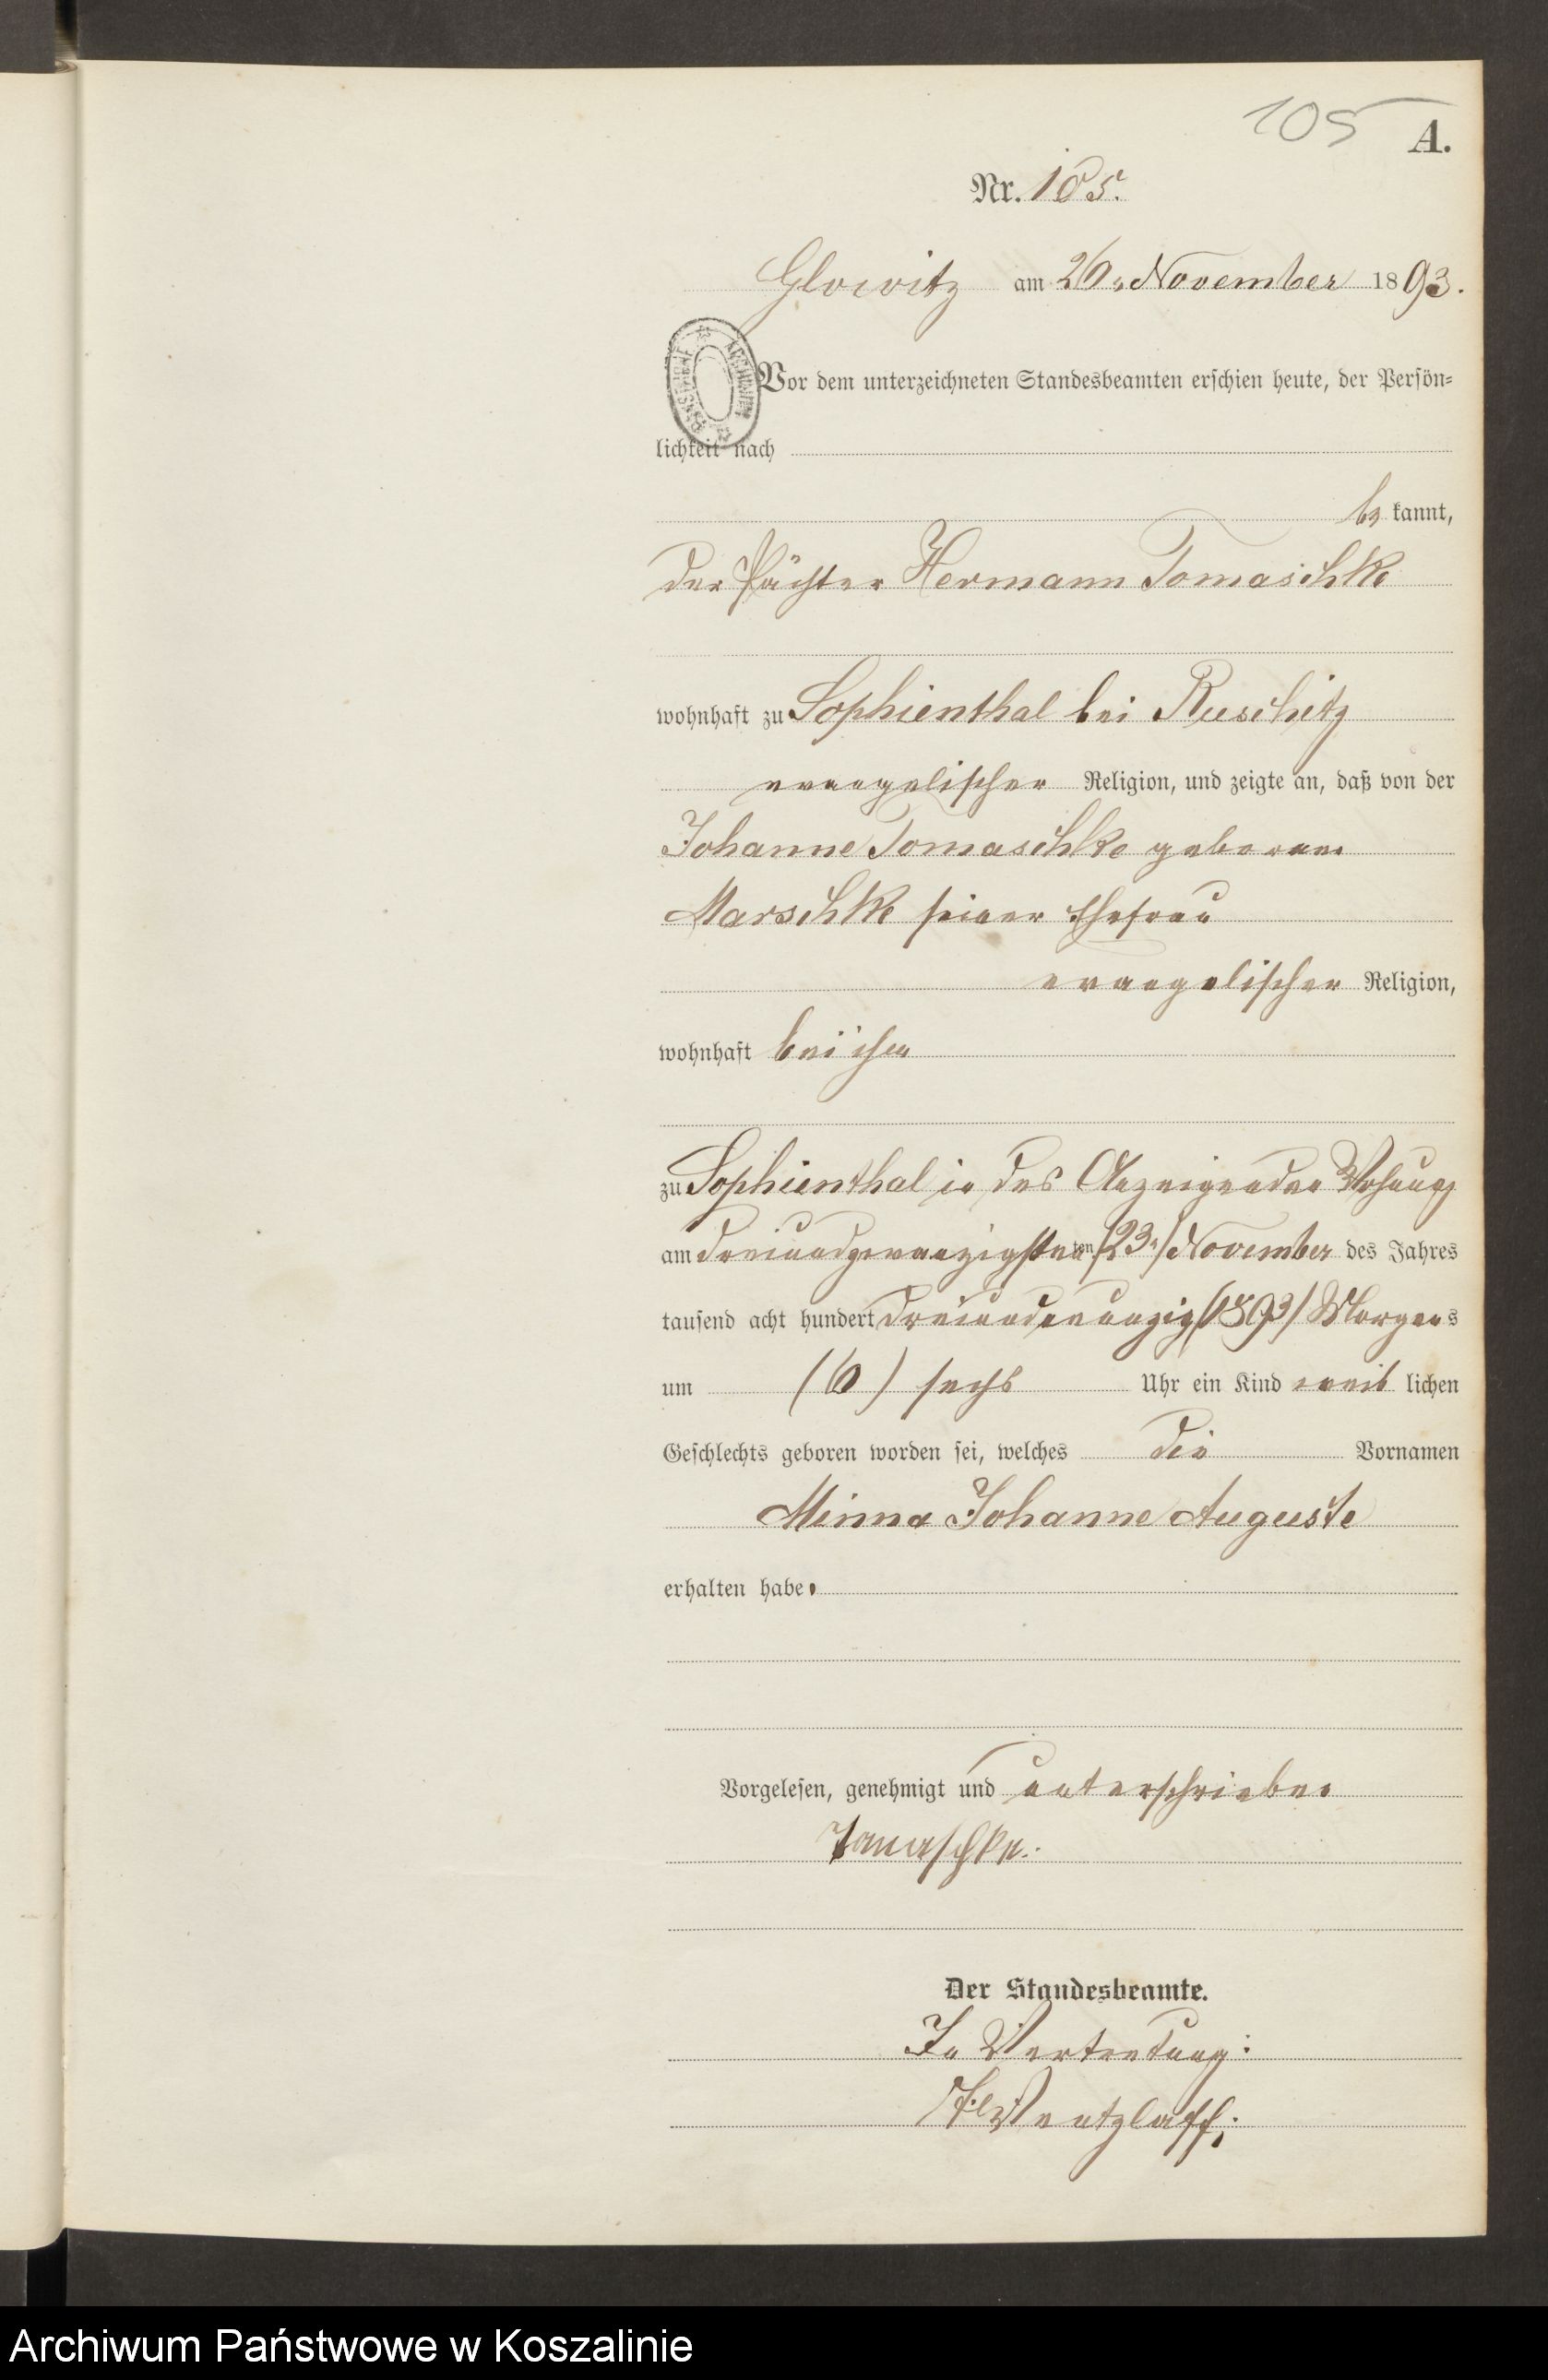 105
A.
Nr. 105.
Glowitz am 26. November 1893.
Vor dem unterzeichneten Standesbeamten erschien heute, der Persön=
lichkeit nach
be kannt,
der Pächter Hermann Tomaschke
wohnhaft zu Sophienthal bei Ruschitz
evangelischer Religion, und zeigte an, daß von der
Johanne Tomaschke geborene
Marschke seiner Ehefrau
evangelischer Religion,
wohnhaft bei ihm
zu Sophienthal in des Anzeigenden Wohnung
am dreiundzwanzigsten ten /23./ November des Jahres
tausend acht hundert dreiundneunzig /1893/ Morgens
um (6) sechs Uhr ein Kind weib lichen
Geschlechts geboren worden sei, welches die Vornamen
Minna Johanne Auguste
erhalten habe.
Vorgelesen, genehmigt und unterschrieben
Tomaschke.
Der Standesbeamte.
In Vertretung:
Wentzlaff.
Archiwum Państwowe w Koszalinie